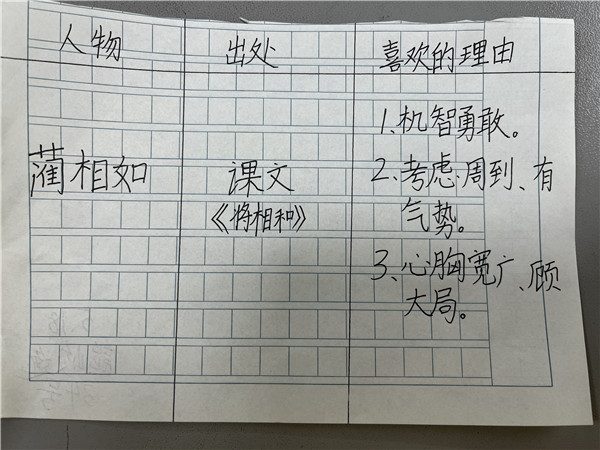 人物 出处 喜欢的理由
1、机智勇敢。
蔺相如 课文 2、考虑周到、有
《将相和》 气势。
3、心胸宽广、顾
大局。